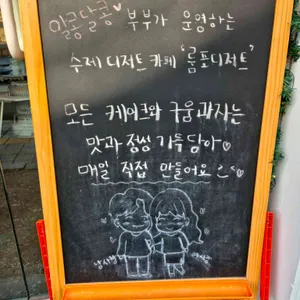 알콩달콩♡ 부부가 운영하는
수제 디저트 카페 '룸포디저트'
모든 케이크와 구움과자는
맛과 정성 가득 담아
매일 직접 만들어요